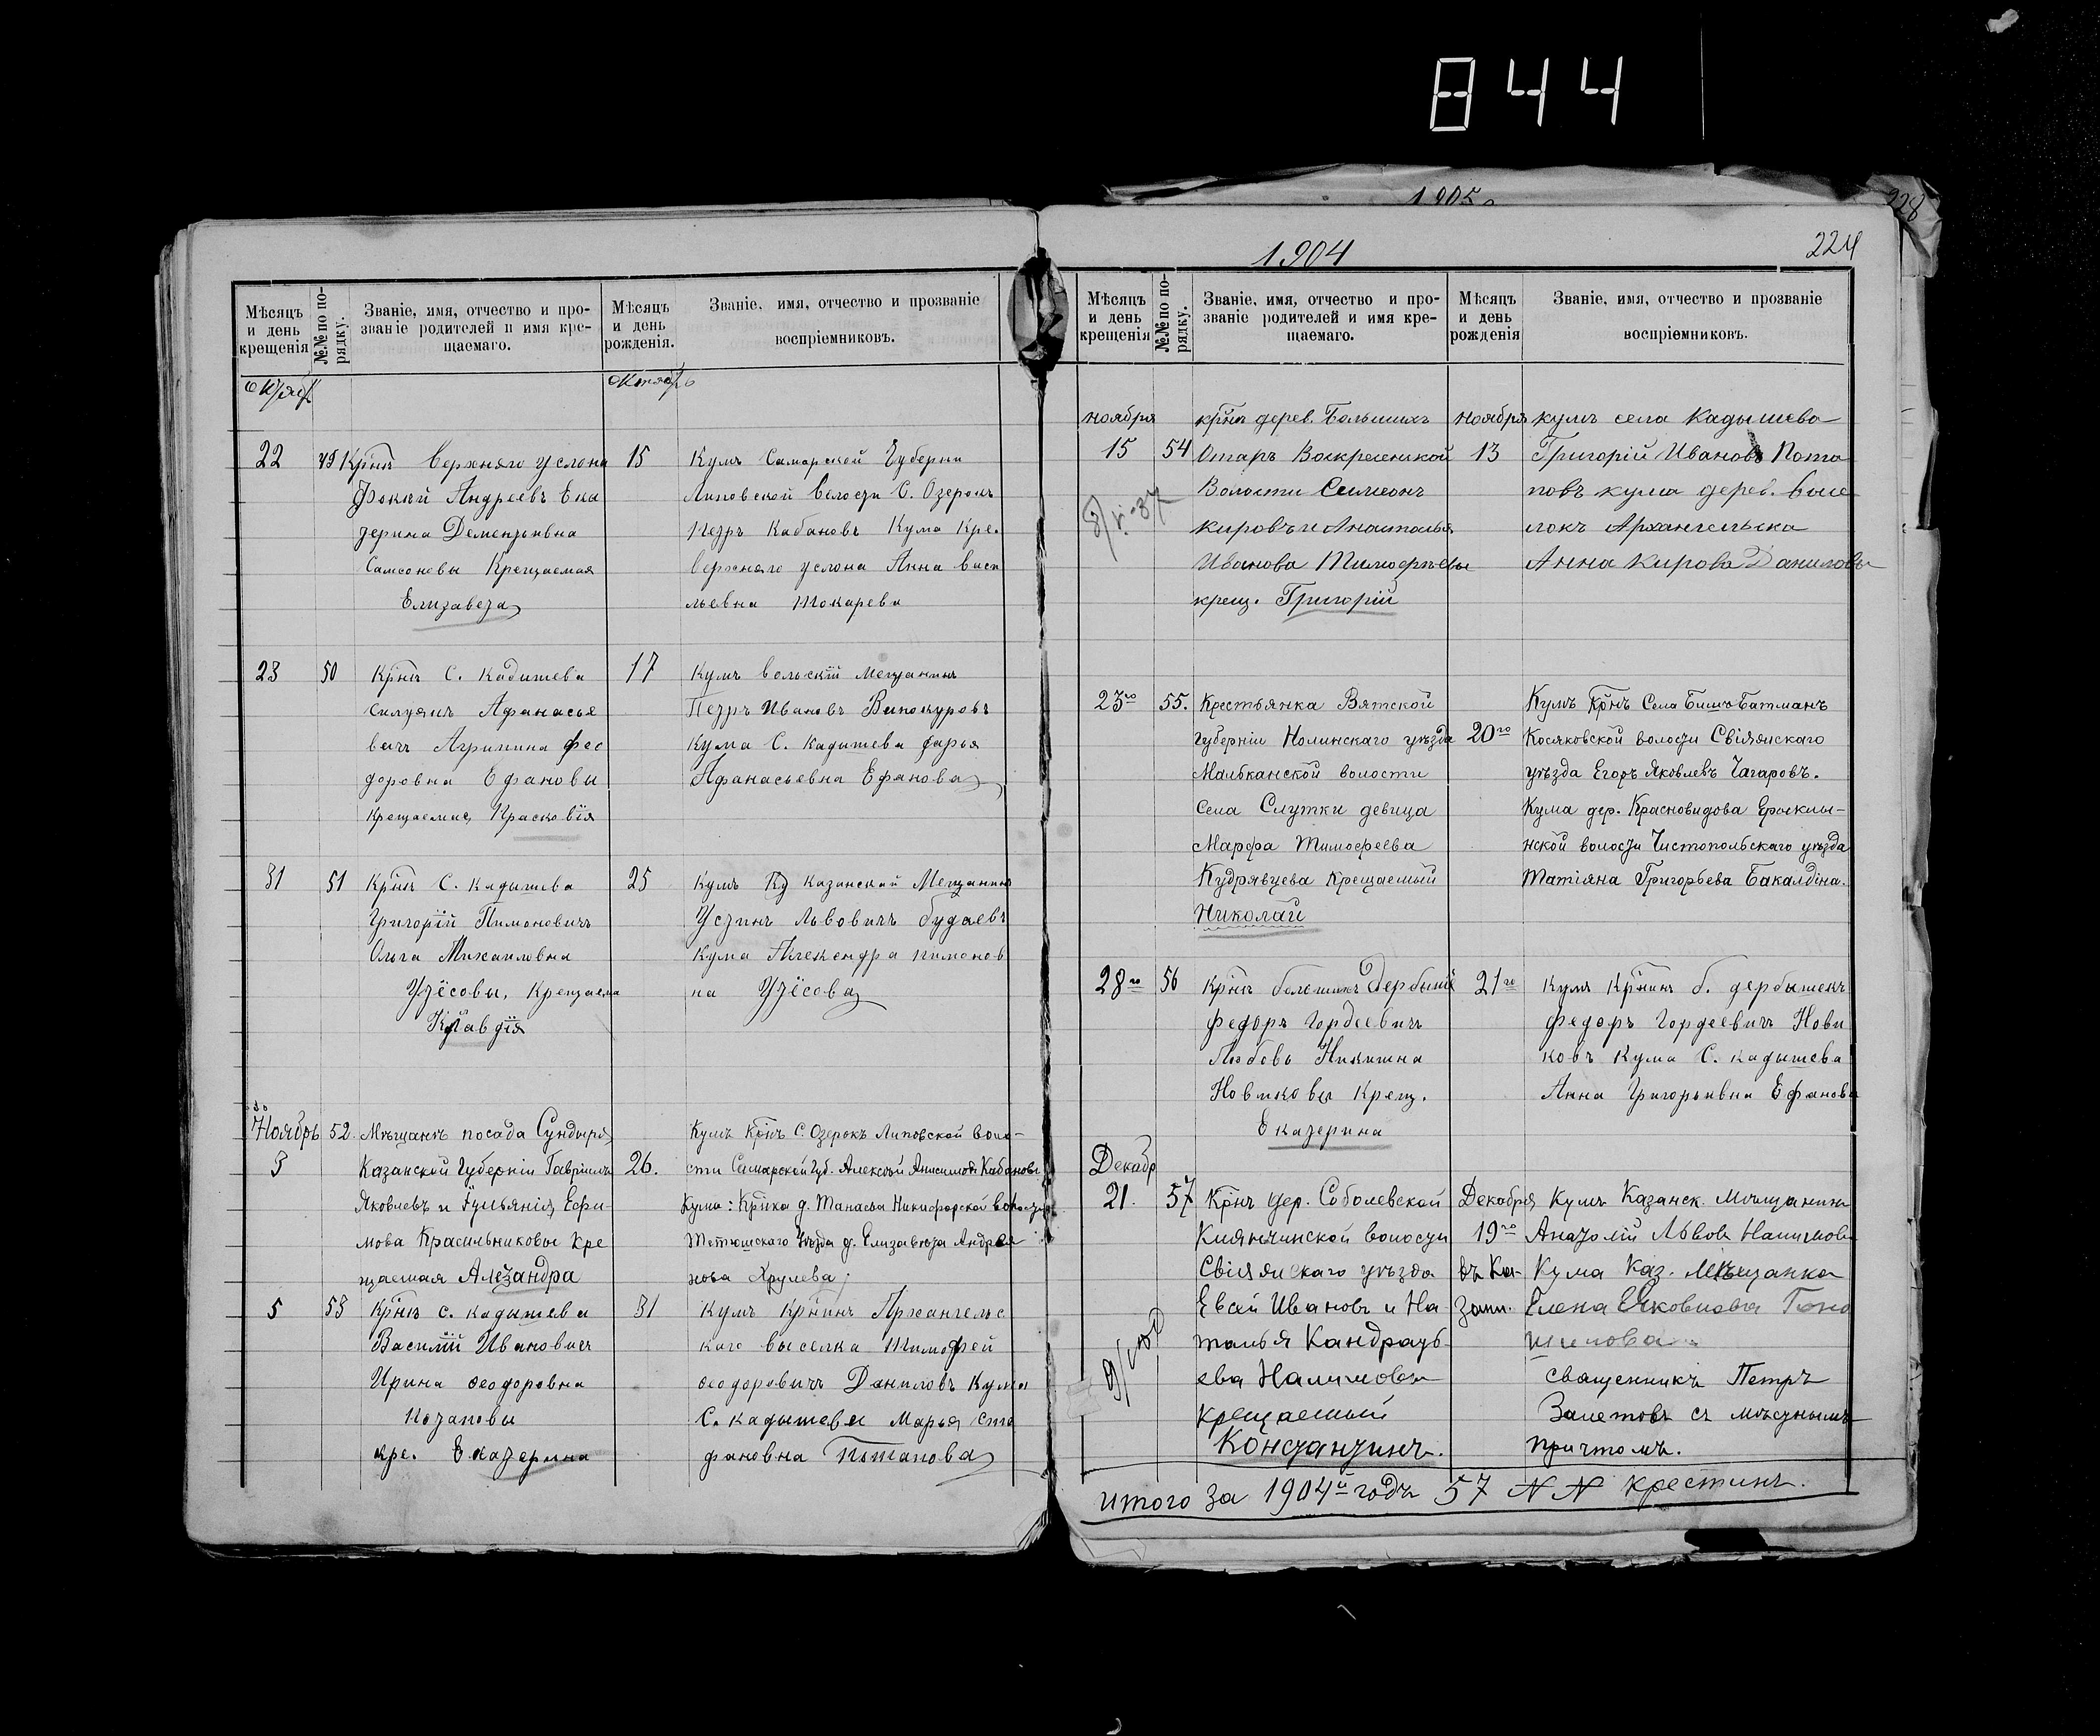 844
1905
228
1904
224
Мѣсяцъ и день крещенія
№№ по порядку.
Званіе, имя, отчество и прозваніе родителей и имя крещаемаго.
Мѣсяцъ и день рожденія.
Званіе, имя, отчество и прозваніе воспріемниковъ.
Октябрь
22 49 Крнъ Верхняго Услона 15 Кумъ Самарской Губерни
Фокѣй Андреевъ Ека Липовской Волости С. Озерокъ
терина Дементьивна Петръ Кабановъ Кума Кре.
Самсоновы Крещаемая Верхняго услона Анна Васи
Елизавета льевна Токарева
23 50 Крнъ С. Кадышева 17 Кумъ Вольскій Мещанинъ
Силуянъ Афанасье Петръ Ивановъ Винокуровъ
вичъ Агрипина Фео Кума С. Кадышева Дарья
доровна Ефановы Афанасьевна Ефанова
Крещаемая Прасковія
31 51 Крнъ С. Кадышева 25 Кумъ Казанской Мещанинъ
Григорій Пимоновичъ Устинъ Львовичъ Будаевъ
Ольга Михаиловна Кума Александра Пимонов
Утёсовы, Крещаема на Утёсова
Клавдія
Ноябрь 52. Мѣщанъ посада Сундыря Кумъ Крнъ С. Озерокъ Липовской воло-
3 Казанской Губерніи Гавріилъ 26. сти Самарской Губ. Алексѣй Анисимовъ Кабановъ
Яковлевъ и Ульянія Ефи- Кума: Крнка д. Танаева Никифорской волости
мова Красильниковы Кре Тетюшскаго Уѣзда д. Елизавета Андреа
щаемая Алеѯандра нова Хрулева
5 53 Крнъ с. Кадышева 31 Кумъ Крнинъ Архангельс
Василій Ивановичъ каго выселка Тимофей
Ирина Ѳеодоровна Ѳеодоровичъ Даниловъ Кума
Потаповы С. Кадышева Марья Сте
кре. Екатерина фановна Потапова
Мѣсяцъ и день крещенія
№№ по порядку.
Званіе, имя, отчество и прозваніе родителей и имя крещаемаго.
Мѣсяцъ и день рожденія
Званіе, имя, отчество и прозваніе воспріемниковъ.
ноября крнъ дерев. Большихъ ноября кумъ села Кадышева
15 54 Отаръ Воскресенской 13 Григорій Ивановъ Пота
Волости Симеонъ повъ кума дерев. высе
Кировъ и Анастасья локъ Архангельска
Иванова Тимофѣевы Анна Кирова Данилова
крещ. Григорій
23го 55. Крестьянка Вятской Кумъ Крнъ Села Бишъ Батманъ
Губерніи Нолинскаго уѣзда 20го Косяковской волости Свіяжскаго
Малыканской волости уѣзда Егоръ Яковлевъ Чагаровъ.
Села Слутки девица Кума дер. Красновидова Ерыклы-
Марфа Тимофеева нской волости Чистопольскаго уѣзда
Кудрявцева Крещаемый Татіяна Григорьева Бакалдина.
Николай
28го 56 Крнъ Большихъ Дербыше 21го Кумъ Крнинъ б. дербышекъ
Федоръ Гордеевичъ Федоръ Гордеевичъ Нови
Любовь Никитна ковъ Кума С. Кадышева
Новиковы Крещ. Анна Григорьивна Ефанова
Екатерина
Декабр
21. 57 Крнъ дер. Соболевской Декабря Кумъ Казанск. Мѣщанинъ
Киянчинской волости 19го Анатолій Львовъ Налимовъ
Свіяжскаго уѣзда въ Ка- Кума Каз. Мѣщанка
Евсей Ивановъ и На- зани. Елена Яковлева Гоно
талья Кандрать- шилова
ева Налимовы Священникъ Петръ
Крещаемый Залетовъ съ мѣстнымъ
Константинъ. причтомъ.
Итого за 1904й годъ 57 N N крестинъ.